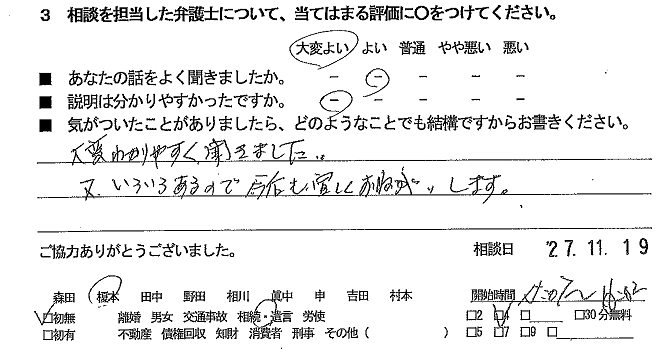 3 相談を担当した弁護士について、当てはまる評価に〇をつけてください。
大変よい よい 普通 やや悪い 悪い
■ あなたの話をよく聞きましたか。 － － － － －
■ 説明は分かりやすかったですか。 － － － － －
■ 気がついたことがありましたら、どのようなことでも結構ですからお書きください。
大変わかりやすく聞きました。
又、いろいろあるので 宜しくお願いします。
ご協力ありがとうございました。 相談日 '27.11.19
森田 榎本 田中 野田 相川 眞中 申 吉田 村本 開始時間
□初無 離婚 男女 交通事故 相続・遺言 労使 □2 □4 □30分無料
□初有 不動産 債権回収 知財 消費者 刑事 その他 ( ) □5 □7 □9 □